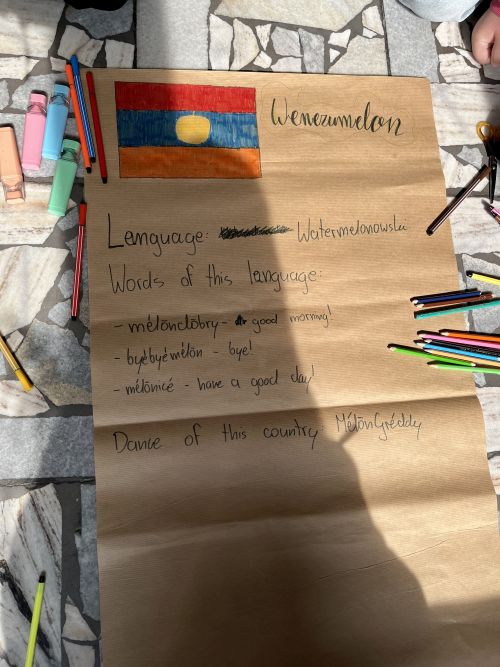 Wenezumelon
Lenguage: Watermelonowski
Words of this language:
- mélōndōbry - good morning!
- byébyémélōn - bye!
- mélōnicé - have a good day!
Dance of this country: MélōnGréddy